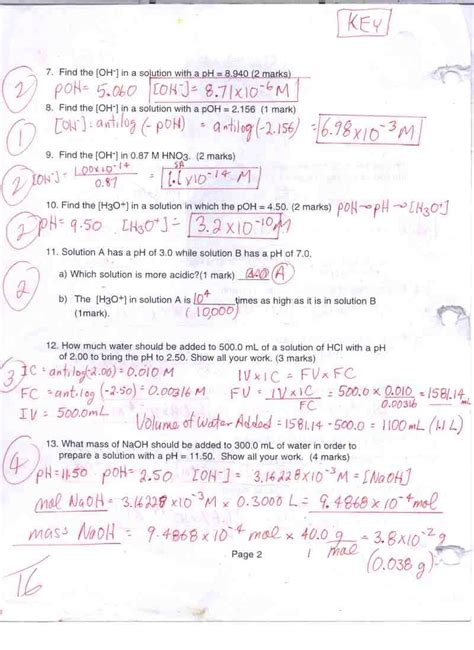 KEY
7. Find the [OH-] in a solution with a pH = 8.940 (2 marks)
2 pOH = 5.060 [OH-] = 8.71x10-6 M
8. Find the [OH-] in a solution with a pOH = 2.156 (1 mark)
1 [OH-] = antilog(- pOH) = antilog(-2.156) = 6.98x10-3 M
9. Find the [OH-] in 0.87 M HNO3. (2 marks)
SA
2 [OH-] = 1.00x10-14 / 0.87 = 1.1x10-14 M
10. Find the [H3O+] in a solution in which the pOH = 4.50. (2 marks) pOH → pH → [H3O+]
2 pH = 9.50 [H3O+] = 3.2x10-10 M
11. Solution A has a pH of 3.0 while solution B has a pH of 7.0.
2
a) Which solution is more acidic?(1 mark) A
b) The [H3O+] in solution A is 10^4 times as high as it is in solution B
(1mark). (10,000)
12. How much water should be added to 500.0 mL of a solution of HCl with a pH
of 2.00 to bring the pH to 2.50. Show all your work. (3 marks)
3 IC = antilog(-2.00) = 0.010 M IV x IC = FV x FC
FC = antilog(-2.50) = 0.00316 M FV = IV x IC / FC = 500.0 x 0.010 / 0.00316 = 1581.14 mL
IV = 500.0mL Volume of Water Added = 1581.14 - 500.0 = 1100 mL (1.1 L)
13. What mass of NaOH should be added to 300.0 mL of water in order to
prepare a solution with a pH = 11.50. Show all your work. (4 marks)
4 pH = 11.50 pOH = 2.50 [OH-] = 3.16228 x10-3 M = [NaOH]
mol NaOH = 3.16228 x10-3 M x 0.3000 L = 9.4868 x10-4 mol
mass NaOH = 9.4868 x10-4 mol x 40.0 g / 1 mol = 3.8x10-2 g
(0.038 g)
Page 2
16